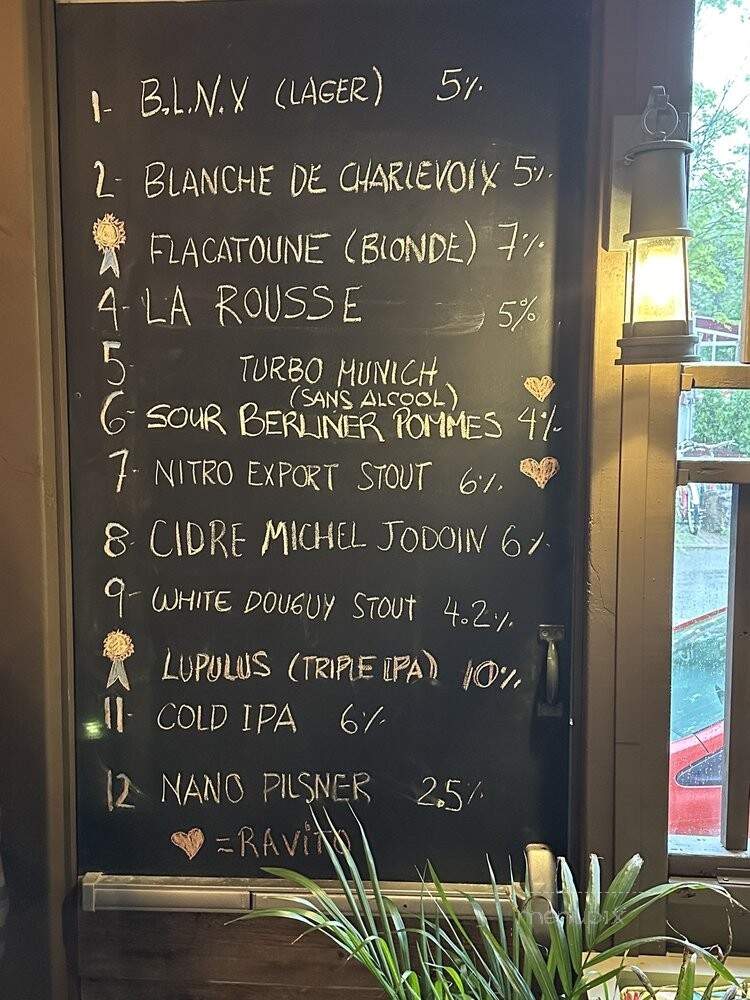 1- B.L.N.X (LAGER) 5%
2- BLANCHE DE CHARLEVOIX 5%
FLACATOUNE (BLONDE) 7%
4- LA ROUSSE 5%
5- TURBO MUNICH
(SANS ALCOOL)
6- SOUR BERLINER POMMES 4%
7- NITRO EXPORT STOUT 6%
8- CIDRE MICHEL JODOIN 6%
9- WHITE DOUGUY STOUT 4.2%
LUPULUS (TRIPLE IPA) 10%
11- COLD IPA 6%
12 NANO PILSNER 2.5%
= RAVITO
menupix